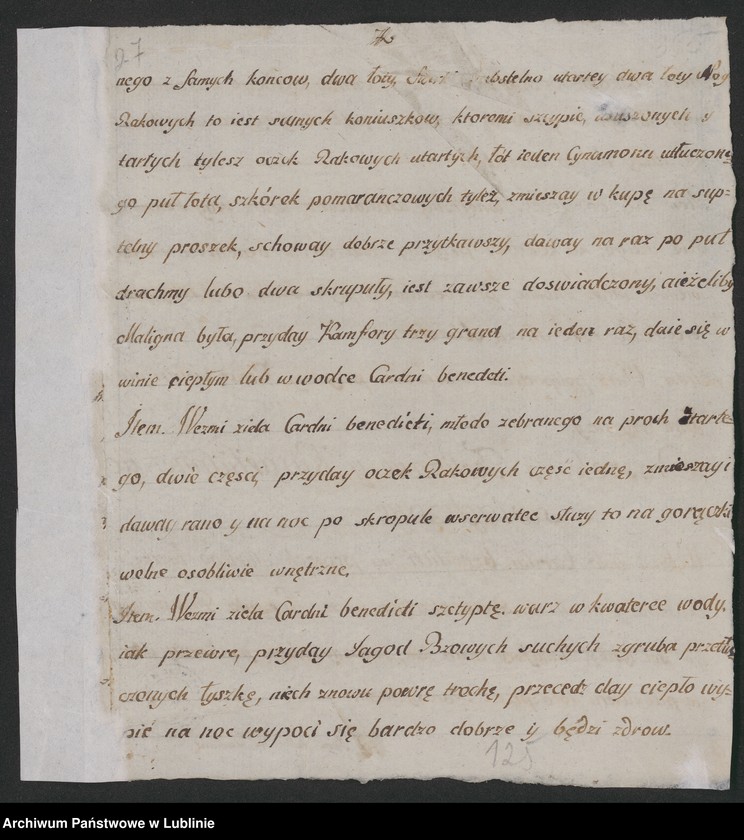 27
nego z samych koncow, dwa łoty, subtelno utartey dwa łoty Nog
Rakowych to iest samych koniuszkow, ktoremi szczypie, ususzonych y
tartych tylesz oczek Rakowych utartych, łót ieden Cynamonu utłuczone
go puł łota, szkórek pomaranczowych tyleż, zmieszay w kupę na sup=
telny proszek, schoway dobrze przytkawszy, daway na raz po puł
drachmy lubo dwa skrupuły, iest zawsze doswiadczony, aieżeliby
Maligna była, przyday Kamfory trzy grana na ieden raz, daie się w
winie ciepłym lub w wodce Cardni benedcti.
Item. Wezmi ziela Cardni benedicti, młodo zebranego na proch starte=
go, dwie częsci, przyday oczek Rakowych częsć iednę, zmieszay i
daway rano y na noc po skropule wserwatec słuzy to na gorączki
wolne osobliwie wnętrzne.
Item. Wezmi ziela Cardni benedicti szczyptę. warz w kwaterce wody.
iak przewre, przyday Jagod Bzowych suchych zgruba przetłu
czonych łyszkę, niech znowu powrę trochę, przecedz day ciepło wy=
pić na noc wypoci się bardzo dobrze ij będzi zdrow.
125
Archiwum Państwowe w Lublinie